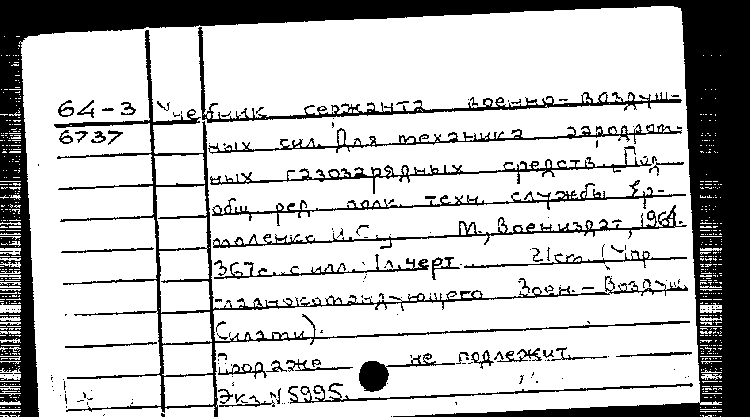 64-3 Учебник сержанта военно-воздуш-
6737 ных сил. Для механика аэродром-
ных газозарядных средств. Под
общ. ред. полк. техн. службы Ер-
моленко И.С. М., Воениздат, 1964.
367 с. с илл.; 1 л. черт. 21 см. (Упр.
главнокомандующего Воен.-Воздуш.
Силами).
Продаже не подлежит.
Экз. N 5995.